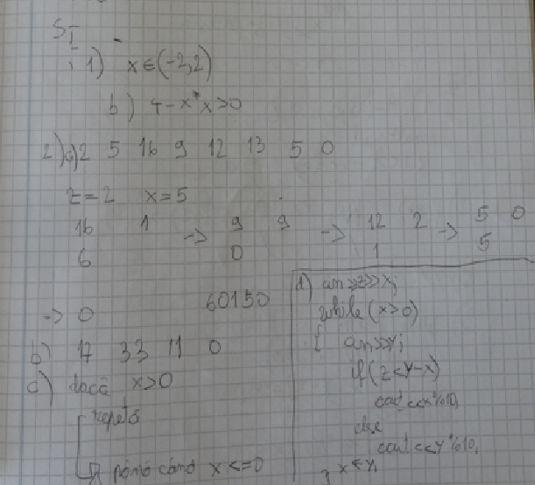 S I
1) x ∈ (-2,2)
b) 4-x*x>0
2) a) 2 5 16 9 12 13 5 0
z=2 x=5
16 1 -> 9 9 -> 12 2 -> 5 0
6 0 1 5
-> 0 60150
b) 17 33 11 0
c) dacă x>0
repetă
până când x<=0
d) cin>>z>>x;
while(x>0)
{ cin>>y;
if(z<y-x)
cout<<x%10;
else
cout<<y%10;
x=y;